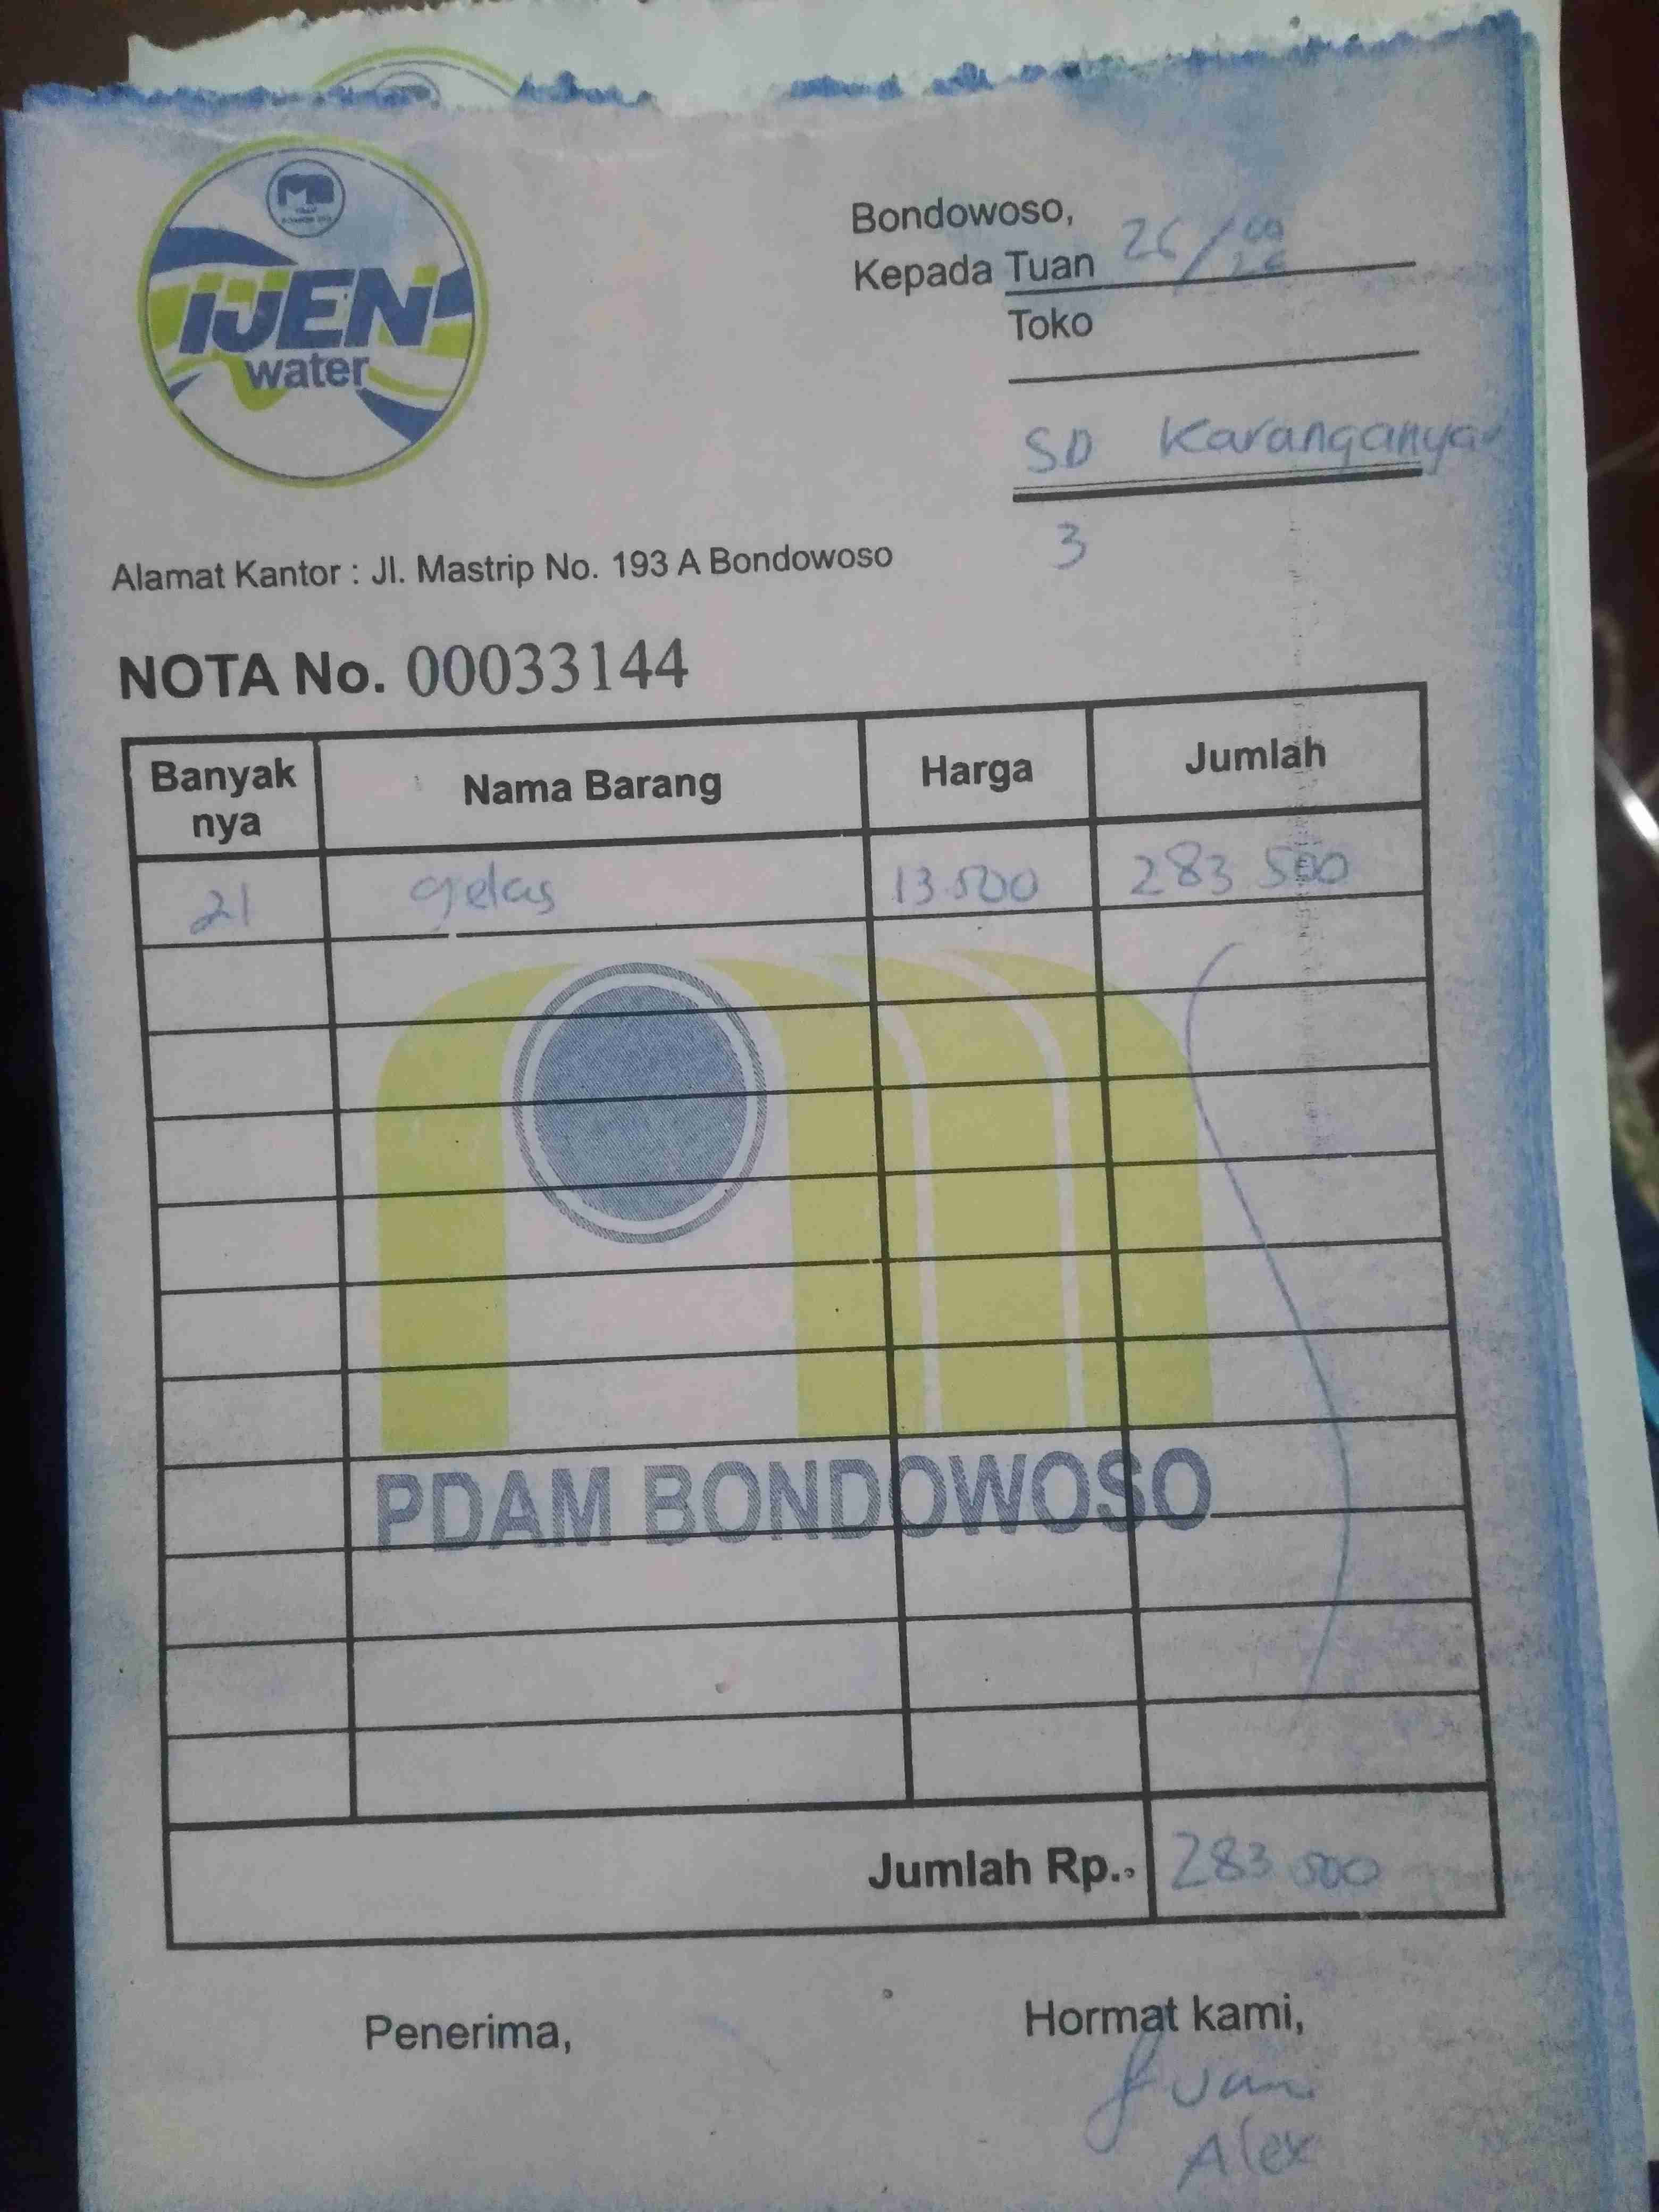 IJEN
water
Bondowoso,
Kepada Tuan
Toko
SD Karanganyar
3
Alamat Kantor : Jl. Mastrip No. 193 A Bondowoso
NOTA No. 00033144
Banyak nya Nama Barang Harga Jumlah
21 gelas 13.500 283 500
PDAM BONDOWOSO
Jumlah Rp.. 283 500
Penerima, Hormat kami,
Alex